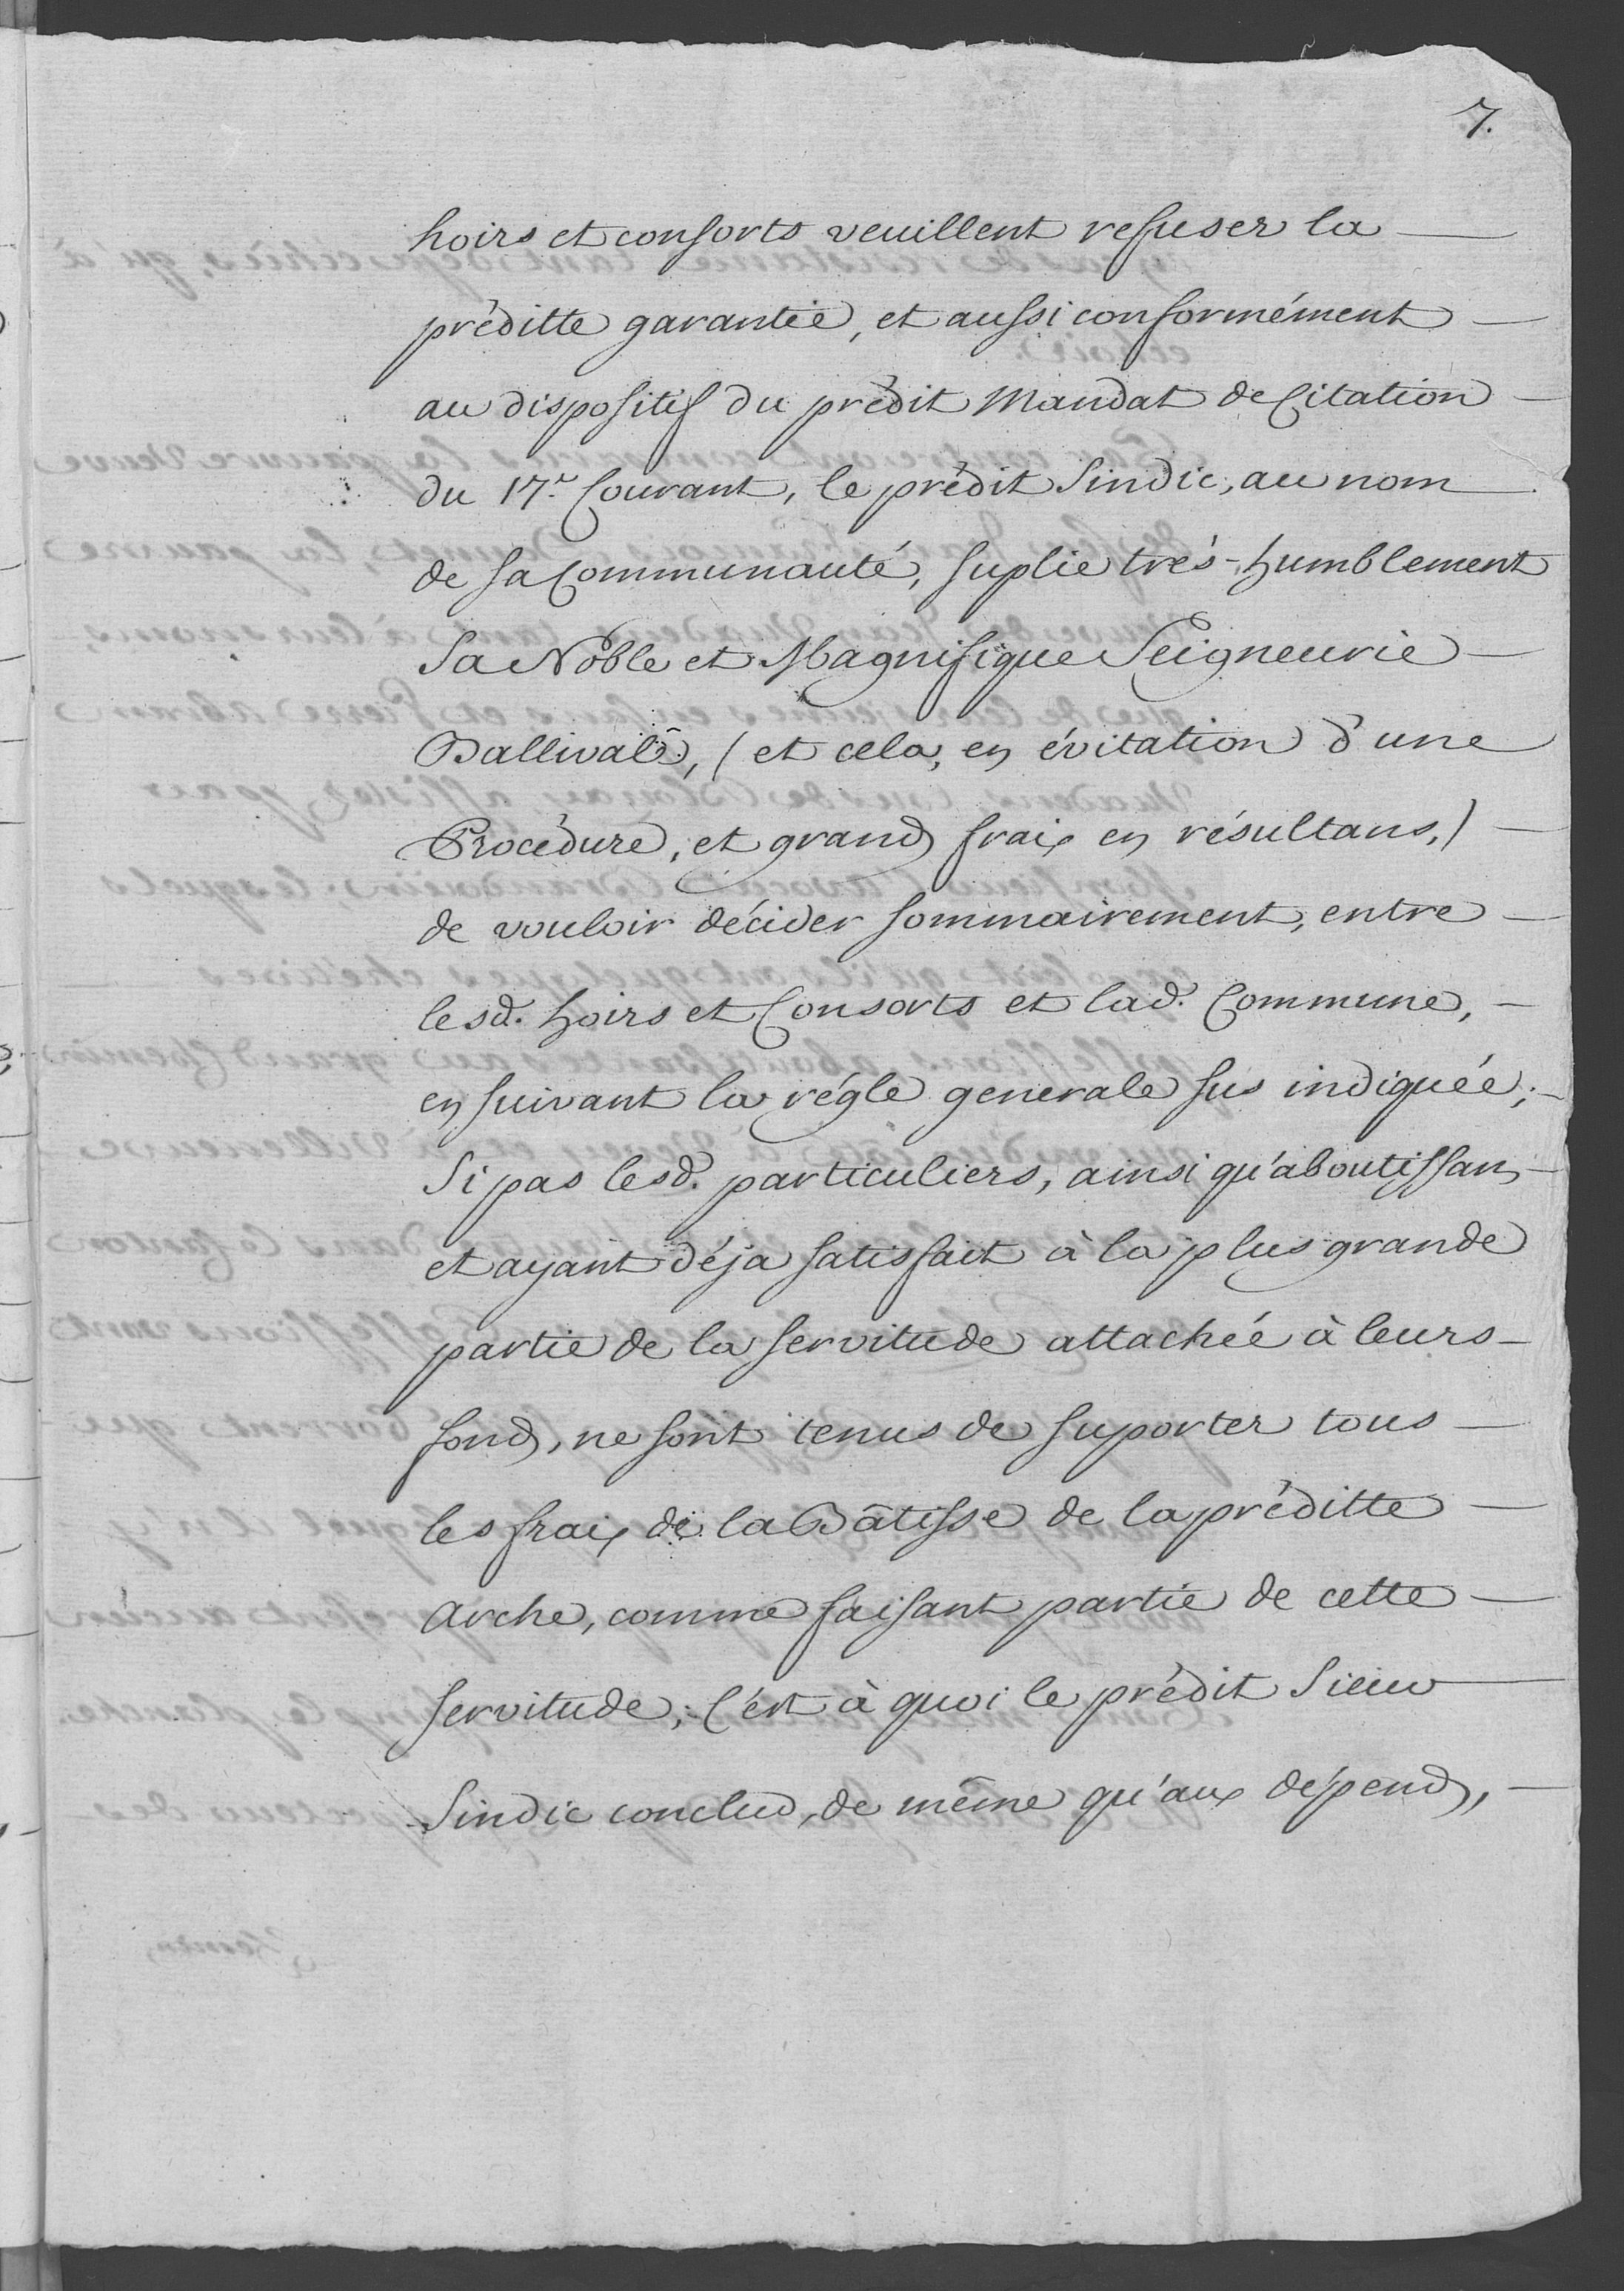 7.
hoirs et consorts veuillent refuser la —
préditte garantie, et aussi conformément —
au dispositif du prédit Mandat de Citation —
du 17.e Courant, le prédit Sindic, au nom —
de sa Communauté, suplie trés-humblement
Sa Noble et Magnifique Seigneurie —
Ballivale, (et cela, en évitation d'une
Procédure, et grands fraix en résultans,) —
de vouloir décider sommairement, entre —
lesd. hoirs et Consorts et lad. Commune, —
en suivant la régle generale sus indiquée; —
Si pas lesd. particuliers, ainsi qu'aboutissans —
et ayant déja satisfait à la plus grande
partie de la servitude attachée à leurs —
fonds, ne sont tenus de suporter tous —
les fraix de la Bâtisse de la préditte —
arche, comme faisant partie de cette —
servitude; C'est à quoi le prédit Sieur —
Sindic conclud, de même qu'aux dépends, —